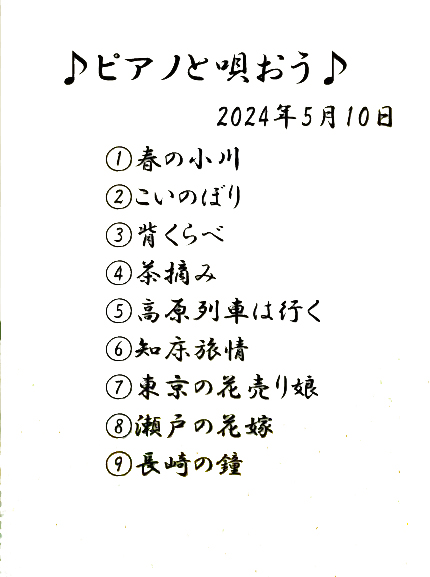 ♪ピアノと唄おう♪
2024年5月10日
①春の小川
②こいのぼり
③背くらべ
④茶摘み
⑤高原列車は行く
⑥知床旅情
⑦東京の花売り娘
⑧瀬戸の花嫁
⑨長崎の鐘